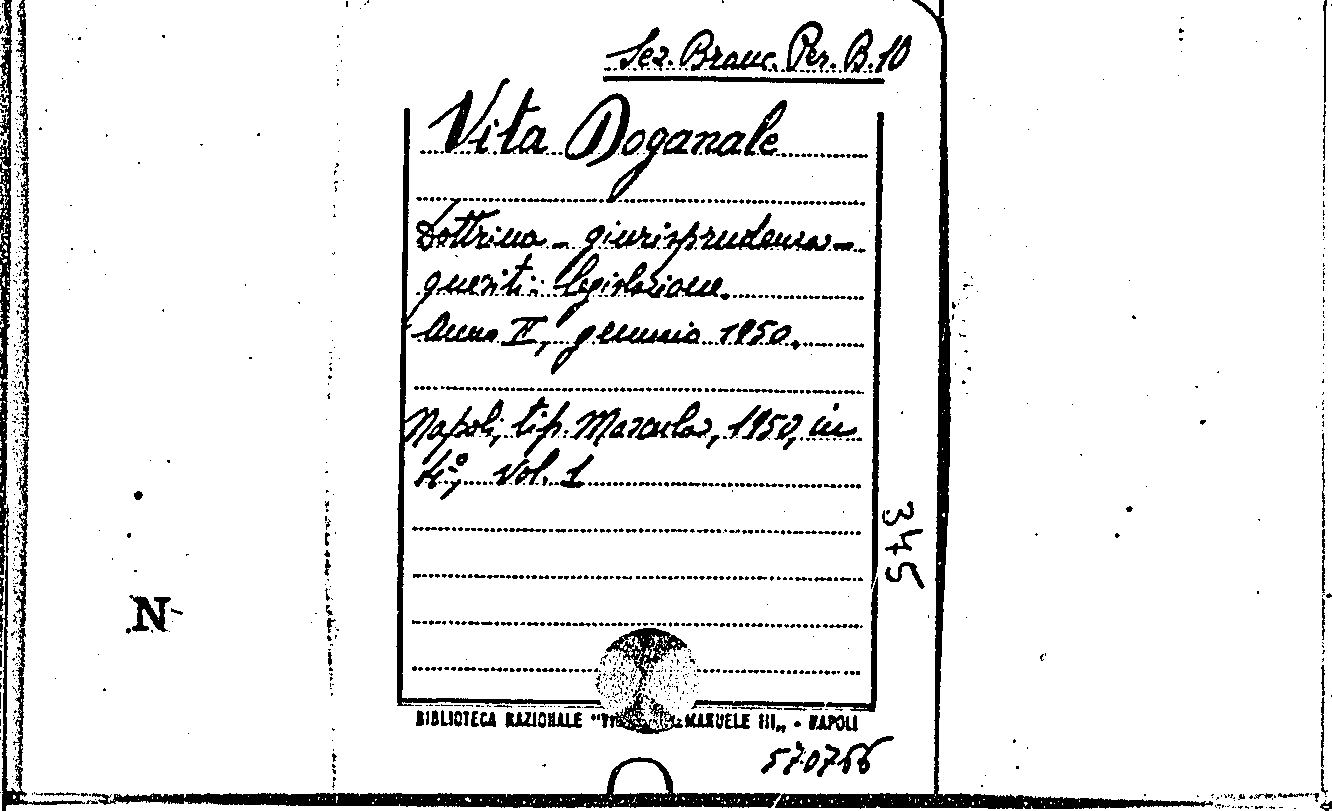 Sez. Branc. Per. B.10
Vita Doganale
Dottrina - giurisprudenza -
quesiti - legislazione.
Anno II, gennaio 1950.
Napoli, tip. 1950, in
4°, vol. 1
345
N
BIBLIOTECA NAZIONALE - NAPOLI
570766